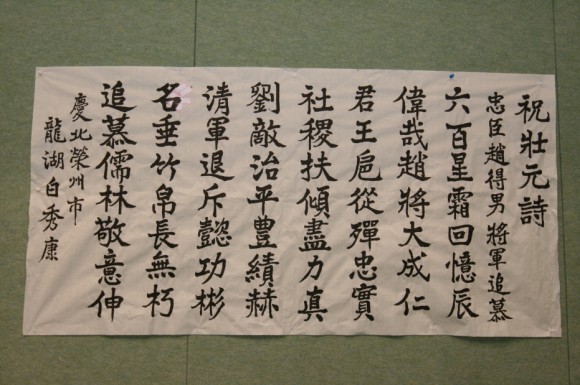 祝壯元詩
忠臣趙得男將軍追慕
六百星霜回憶辰
偉哉趙將大成仁
君王扈從殫忠實
社稷扶傾盡力真
劉敵治平豊績赫
清軍退斥懿功彬
名垂竹帛長無朽
追慕儒林敬意伸
慶北榮州市
龍湖白秀康